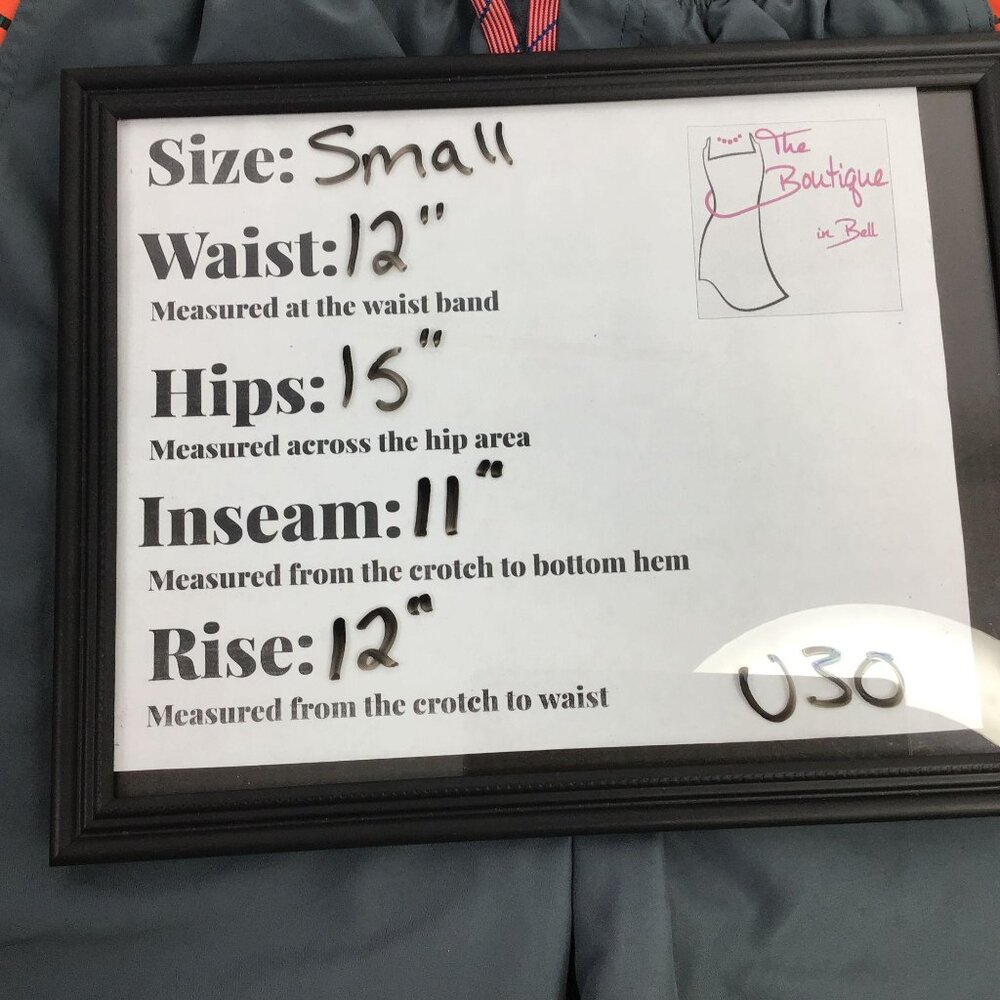 Size: Small
The
Boutique
in Bell
Waist: 12"
Measured at the waist band
Hips: 15"
Measured across the hip area
Inseam: 11"
Measured from the crotch to bottom hem
Rise: 12"
Measured from the crotch to waist
U30